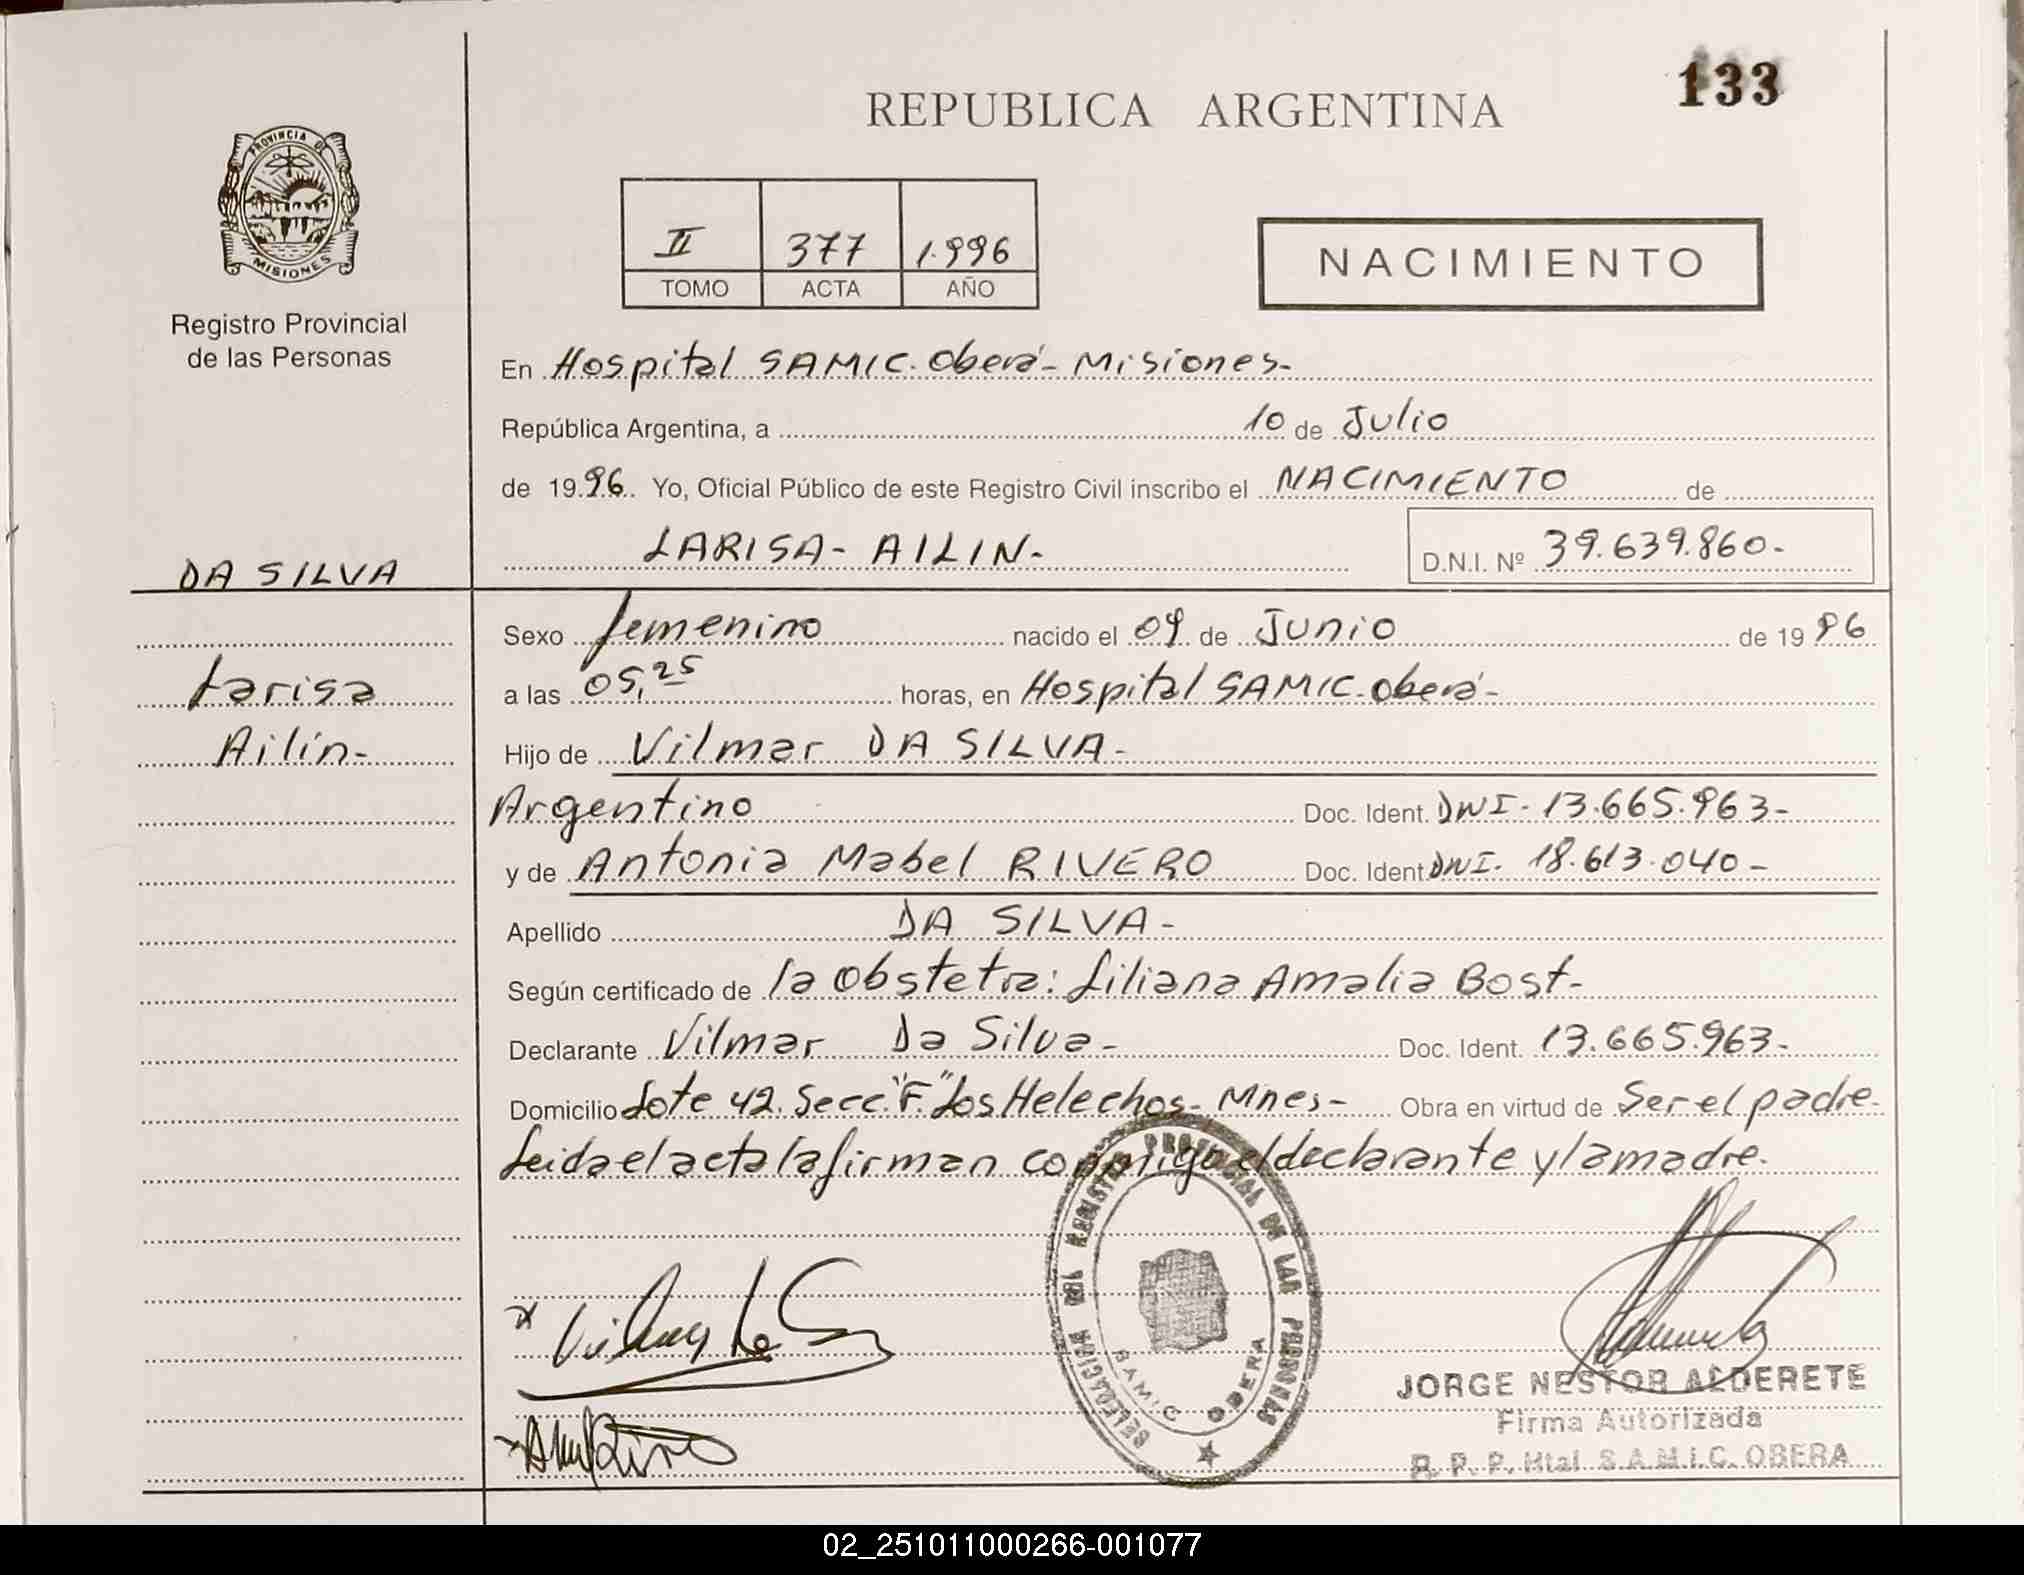 133
REPUBLICA ARGENTINA
PROVINCIA DE
MISIONES
Registro Provincial
de las Personas
II 377 1.996
TOMO ACTA AÑO
NACIMIENTO
En Hospital SAMIC. Oberá - Misiones-
República Argentina, a 10 de Julio
de 1996. Yo, Oficial Público de este Registro Civil inscribo el NACIMIENTO de
LARISA - AILIN- D.N.I. Nº 39.639.860-
DA SILVA
Larisa
Ailín-
Sexo femenino nacido el 09 de Junio de 1996
a las 05,25 horas, en Hospital SAMIC. Oberá-
Hijo de Vilmar DA SILVA-
Argentino Doc. Ident. DNI- 13.665.963-
y de Antonia Mabel RIVERO Doc. Ident DNI. 18.613.040-
Apellido DA SILVA-
Según certificado de la Obstetra: Liliana Amalia Bost-
Declarante Vilmar Da Silva- Doc. Ident. 13.665.963-
Domicilio Lote 42. Secc. "F." Los Helechos- Mnes- Obra en virtud de Ser el padre.
Leida el acta la firman conmigo el declarante y la madre.
DELEGACION DEL REGISTRO PROVINCIAL DE LAS PERSONAS
SAMIC OBERA
JORGE NESTOR ALDERETE
Firma Autorizada
R. P. P. Htal. S.A.M.I.C. OBERA
02_251011000266-001077